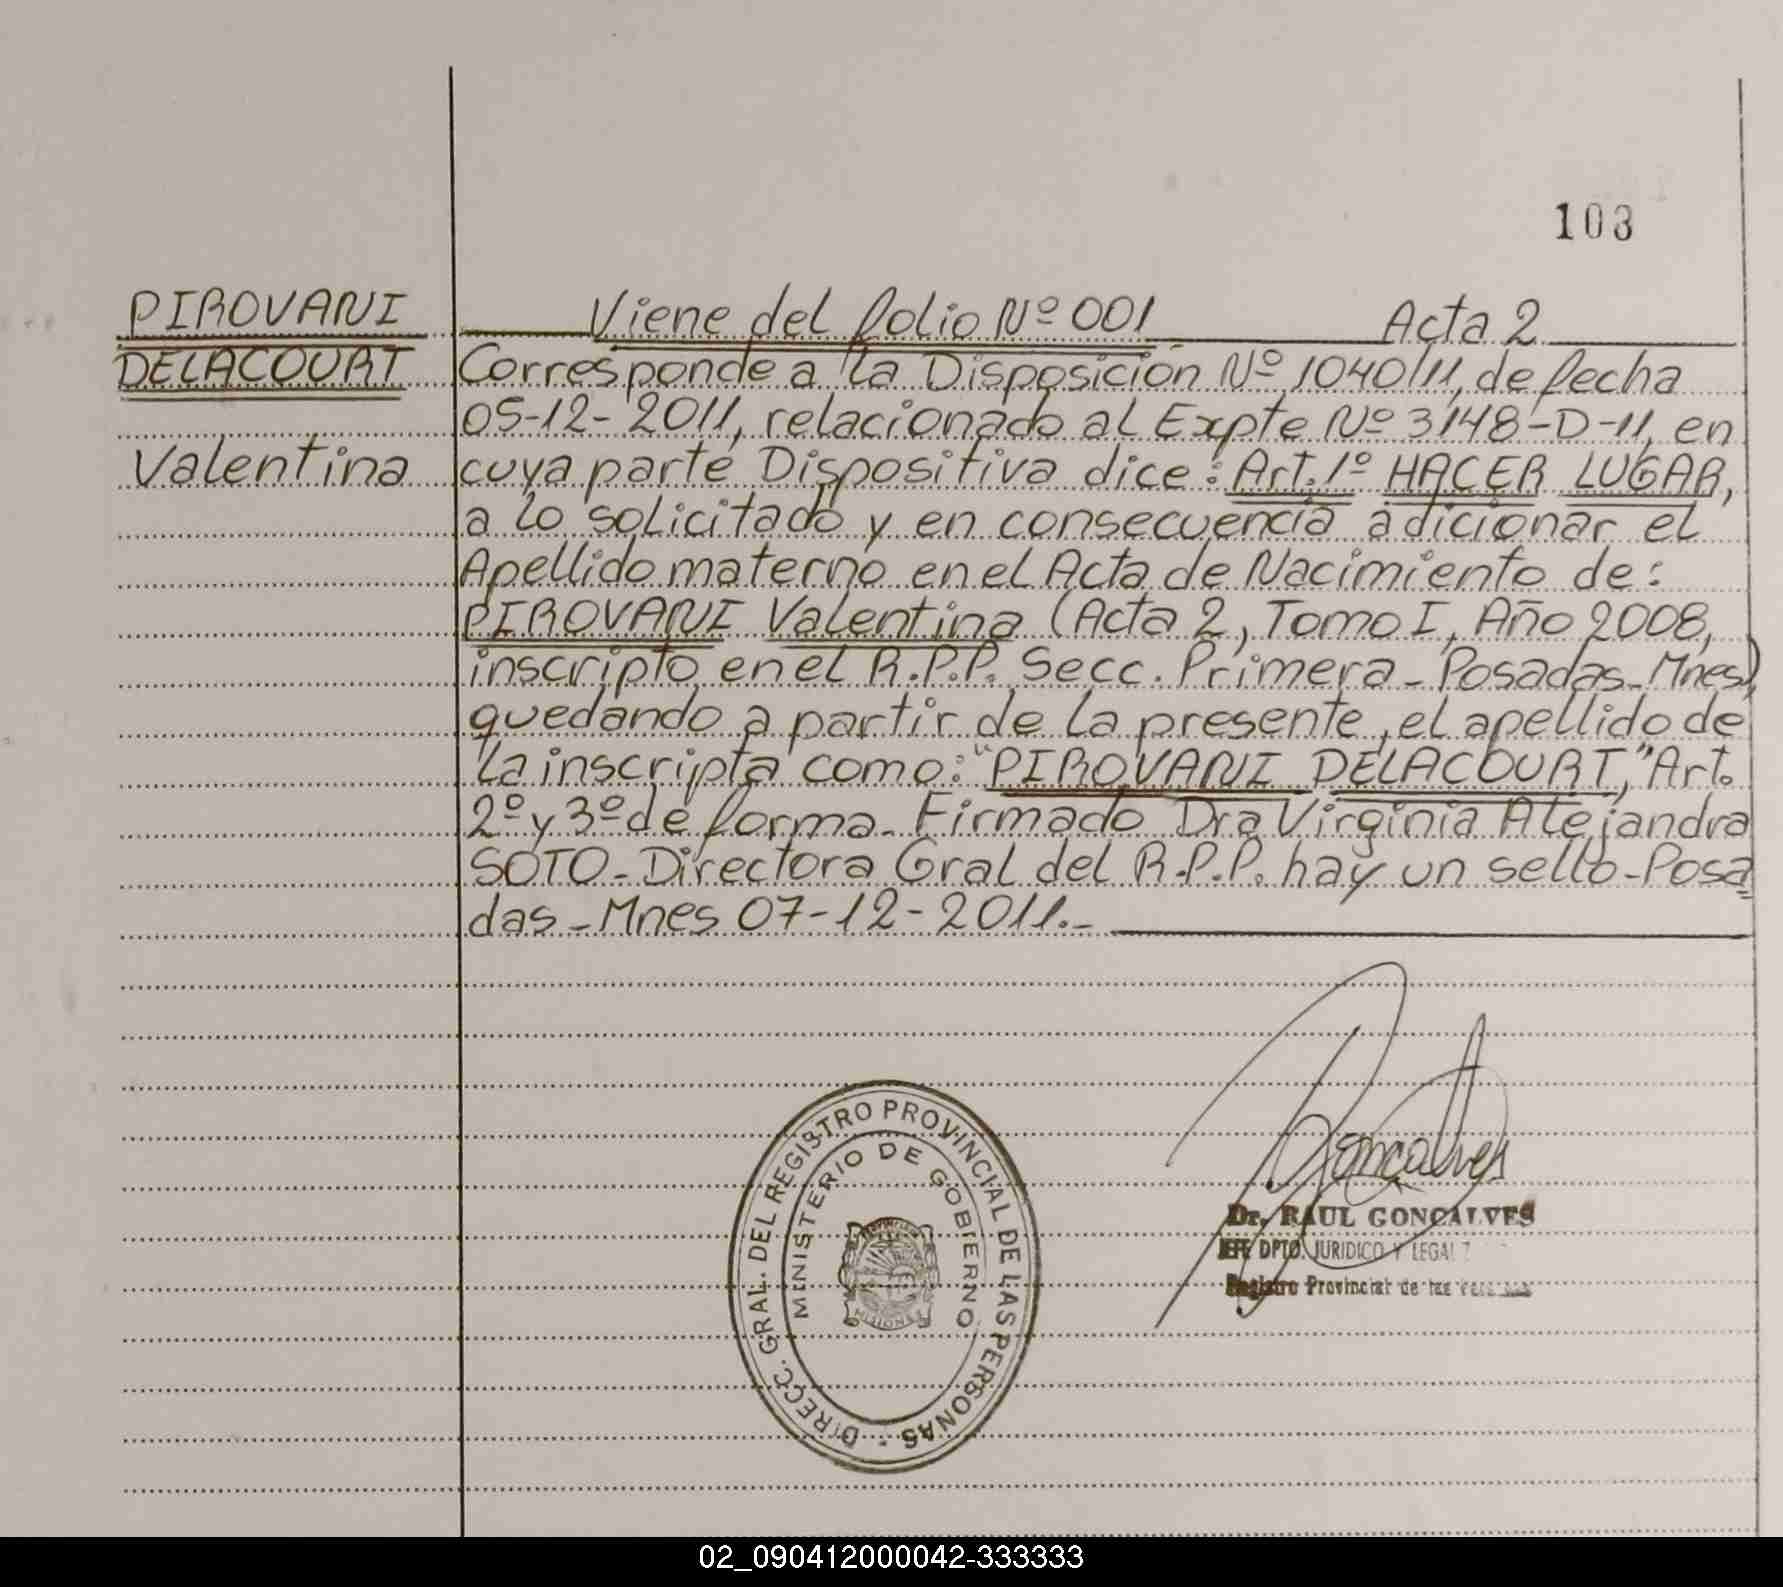 103
PIROVANI
DELACOURT
Valentina
Viene del folio Nº 001 Acta 2
Corresponde a la Disposición Nº 1040/11, de fecha
05-12-2011, relacionado al Expte Nº 3148-D-11, en
cuya parte Dispositiva dice: Art. 1º HACER LUGAR,
a lo solicitado y en consecuencia adicionar el
Apellido materno en el Acta de Nacimiento de:
PIROVANI Valentina (Acta 2, Tomo I, Año 2008,
inscripto en el R.P.P. Secc. Primera - Posadas - Mnes)
quedando a partir de la presente, el apellido de
la inscripta como: "PIROVANI DELACOURT," Art.
2º y 3º de forma. Firmado Dra Virginia Alejandra
SOTO - Directora Gral del R.P.P. hay un sello - Posa
das - Mnes 07-12-2011.-
DIRECC. GRAL. DEL REGISTRO PROVINCIAL DE LAS PERSONAS -
MINISTERIO DE GOBIERNO
PROVINCIA
MISIONES
Goncalves
Dr. RAUL GONCALVES
JEFE DPTO. JURIDICO Y LEGAL
Registro Provincial de las
02_090412000042-333333